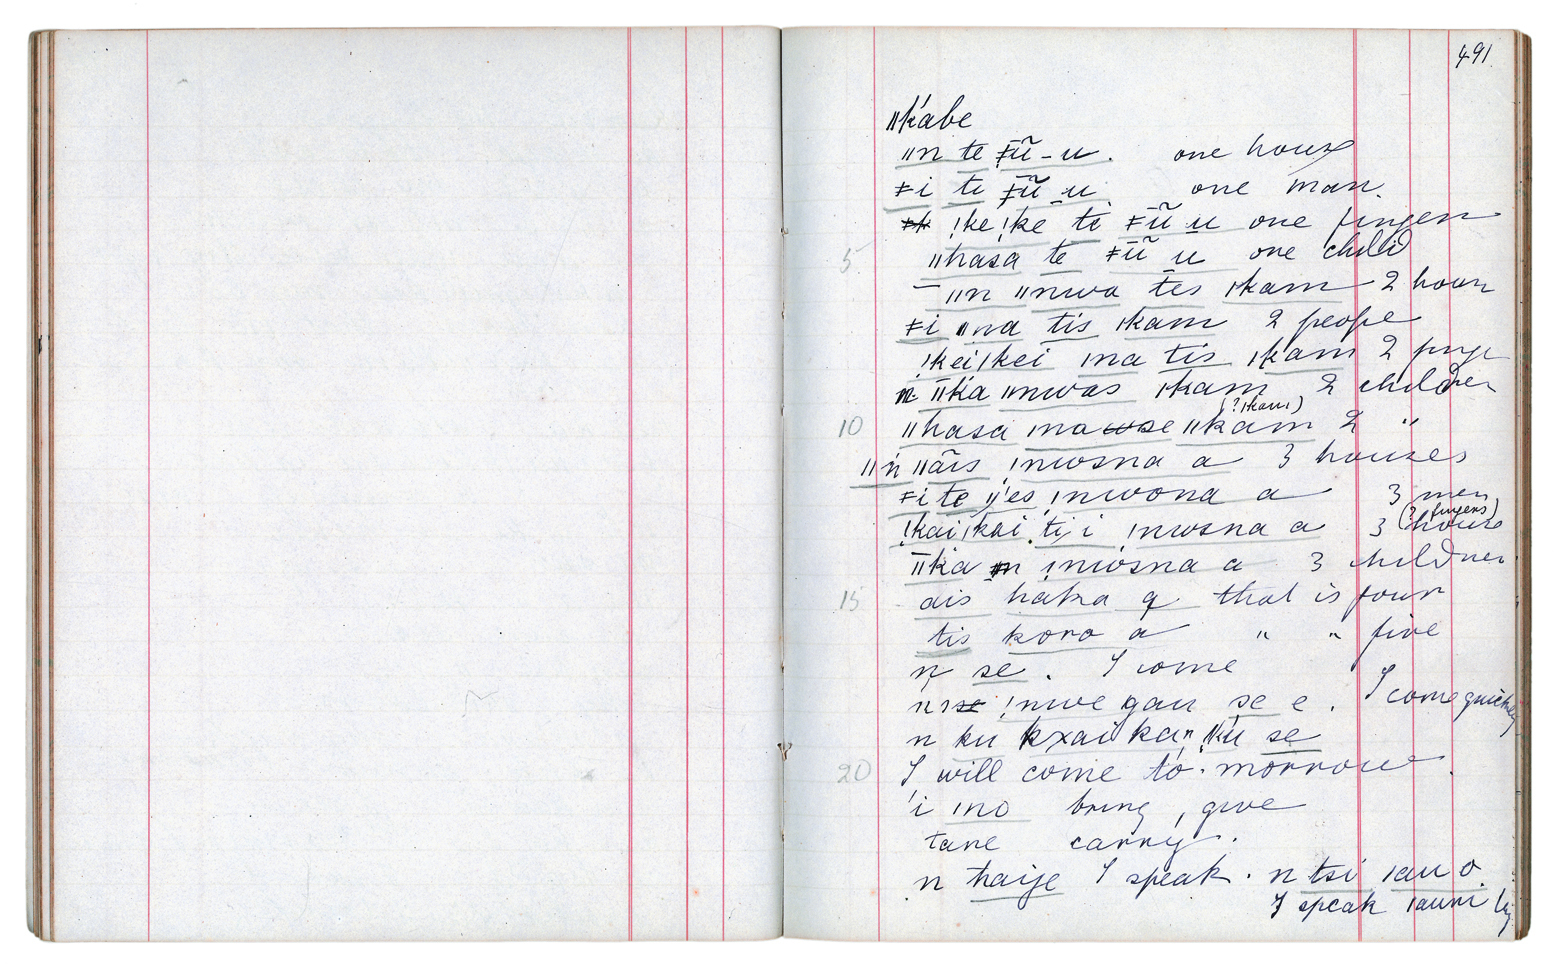 491
ǁkabe
ǁn te ǂũ-u. one house
ǂi te ǂũ u. one man.
ǃkeǃke te ǂũ u one finger
5 ǁhasa te ǂũ u one child
ǁn ǁnwa tes ǀkam 2 hous
ǂi ǁna tis ǀkam 2 people
ǃkeiǀkei ǀna tis ǀkam 2 finge
n ǁka ǁnwas ǀkam 2 children
(?ǀkam)
10 ǁhasa ǀnawse ǁkam 2 "
ǁn ǁãis ǃnwsna a 3 houses
ǂi te ǁ'es ǃnwona a 3 men
(? fingers)
ǃkaiǀkai ti i ǃnwsna a 3 house
ǁka ǃnwsna a 3 children
15 ais haka a that is four
tis koro a " " five
n se. I come
n ǃnwe gau se e. I come quickly
n ku kxai ka se
20 I will come to-morrow.
'i ǀno bring, give
tane carry.
n haije I speak. n tsi ǀau o.
I speak ǀauni